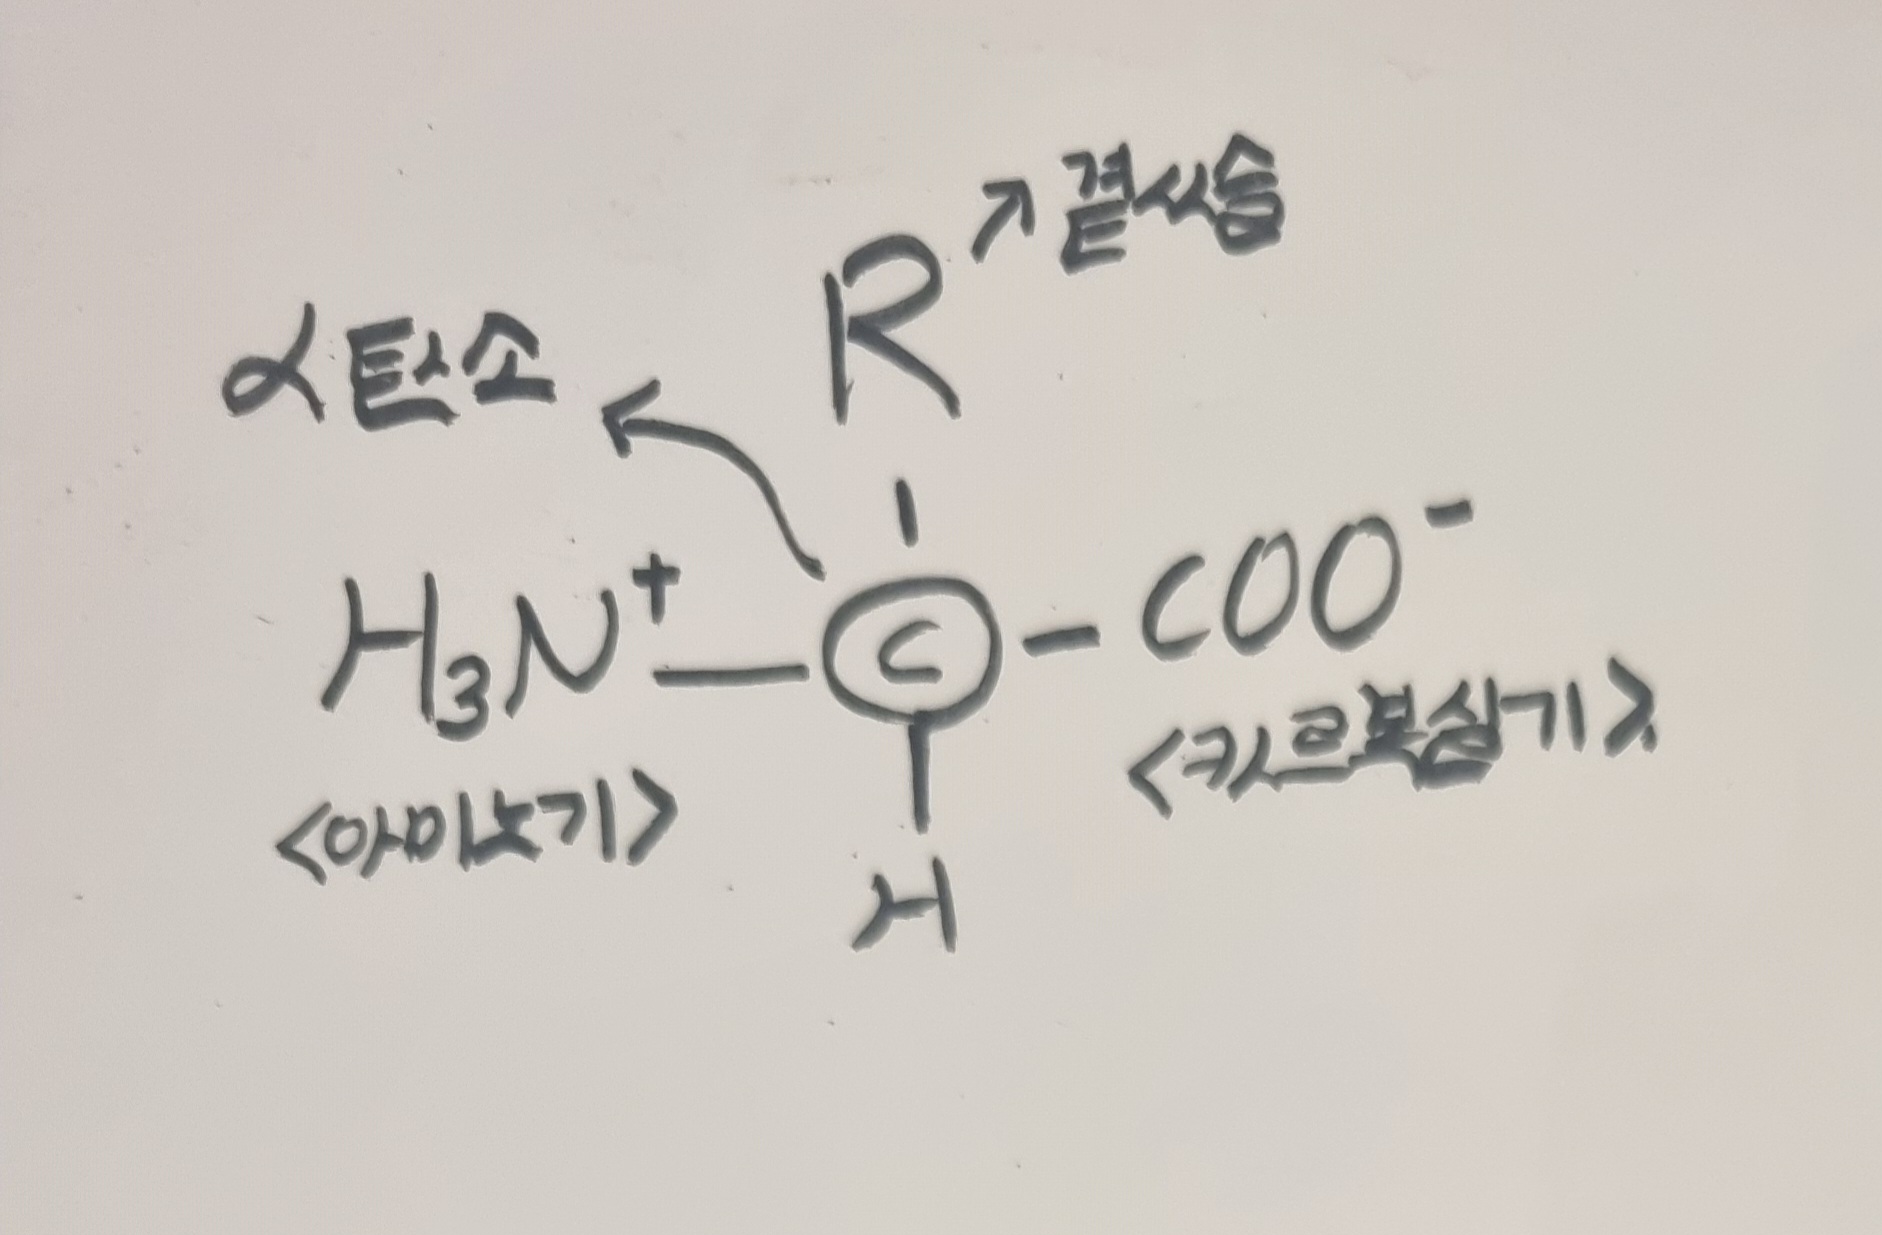 R ↗ 곁사슬
α 탄소
H₃N⁺ — C — COO⁻
<카르복실기>
<아미노기>
H